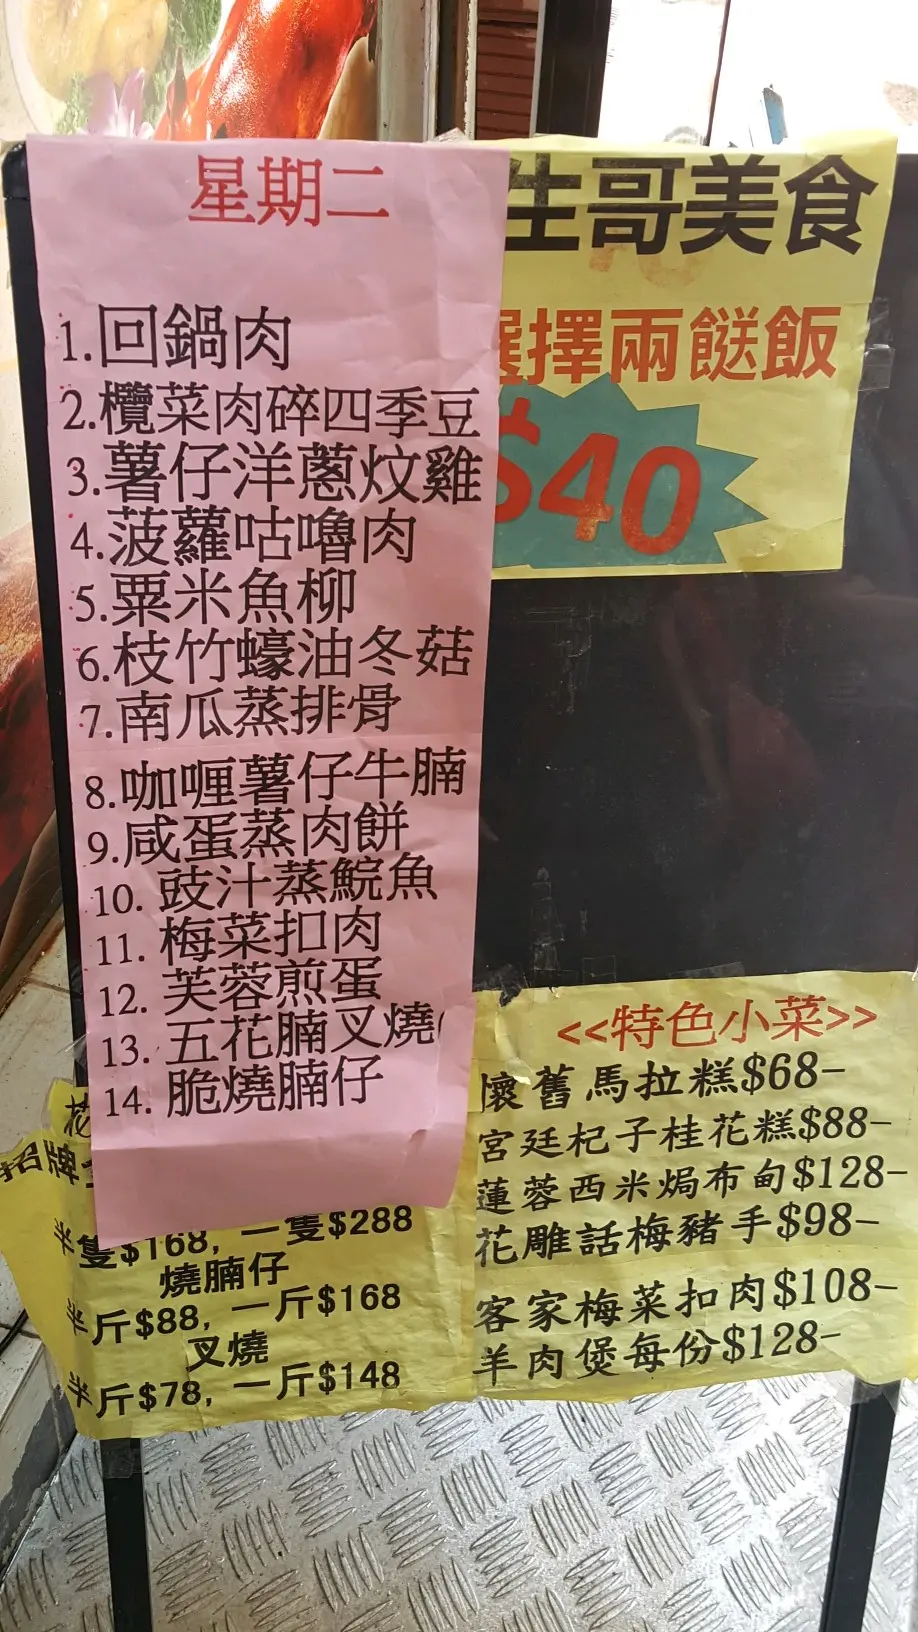 星期二
1.回鍋肉
2.欖菜肉碎四季豆
3.薯仔洋蔥炆雞
4.菠蘿咕嚕肉
5.粟米魚柳
6.枝竹蠔油冬菇
7.南瓜蒸排骨
8.咖喱薯仔牛腩
9.咸蛋蒸肉餅
10. 豉汁蒸鯇魚
11. 梅菜扣肉
12. 芙蓉煎蛋
13. 五花腩叉燒
14. 脆燒腩仔
生哥美食
選擇兩餸飯
$40
花
招牌
半隻$168, 一隻$288
燒腩仔
半斤$88, 一斤$168
叉燒
半斤$78, 一斤$148
<<特色小菜>>
懷舊馬拉糕$68-
宮廷杞子桂花糕$88-
蓮蓉西米焗布甸$128-
花雕話梅豬手$98-
客家梅菜扣肉$108-
羊肉煲每份$128-